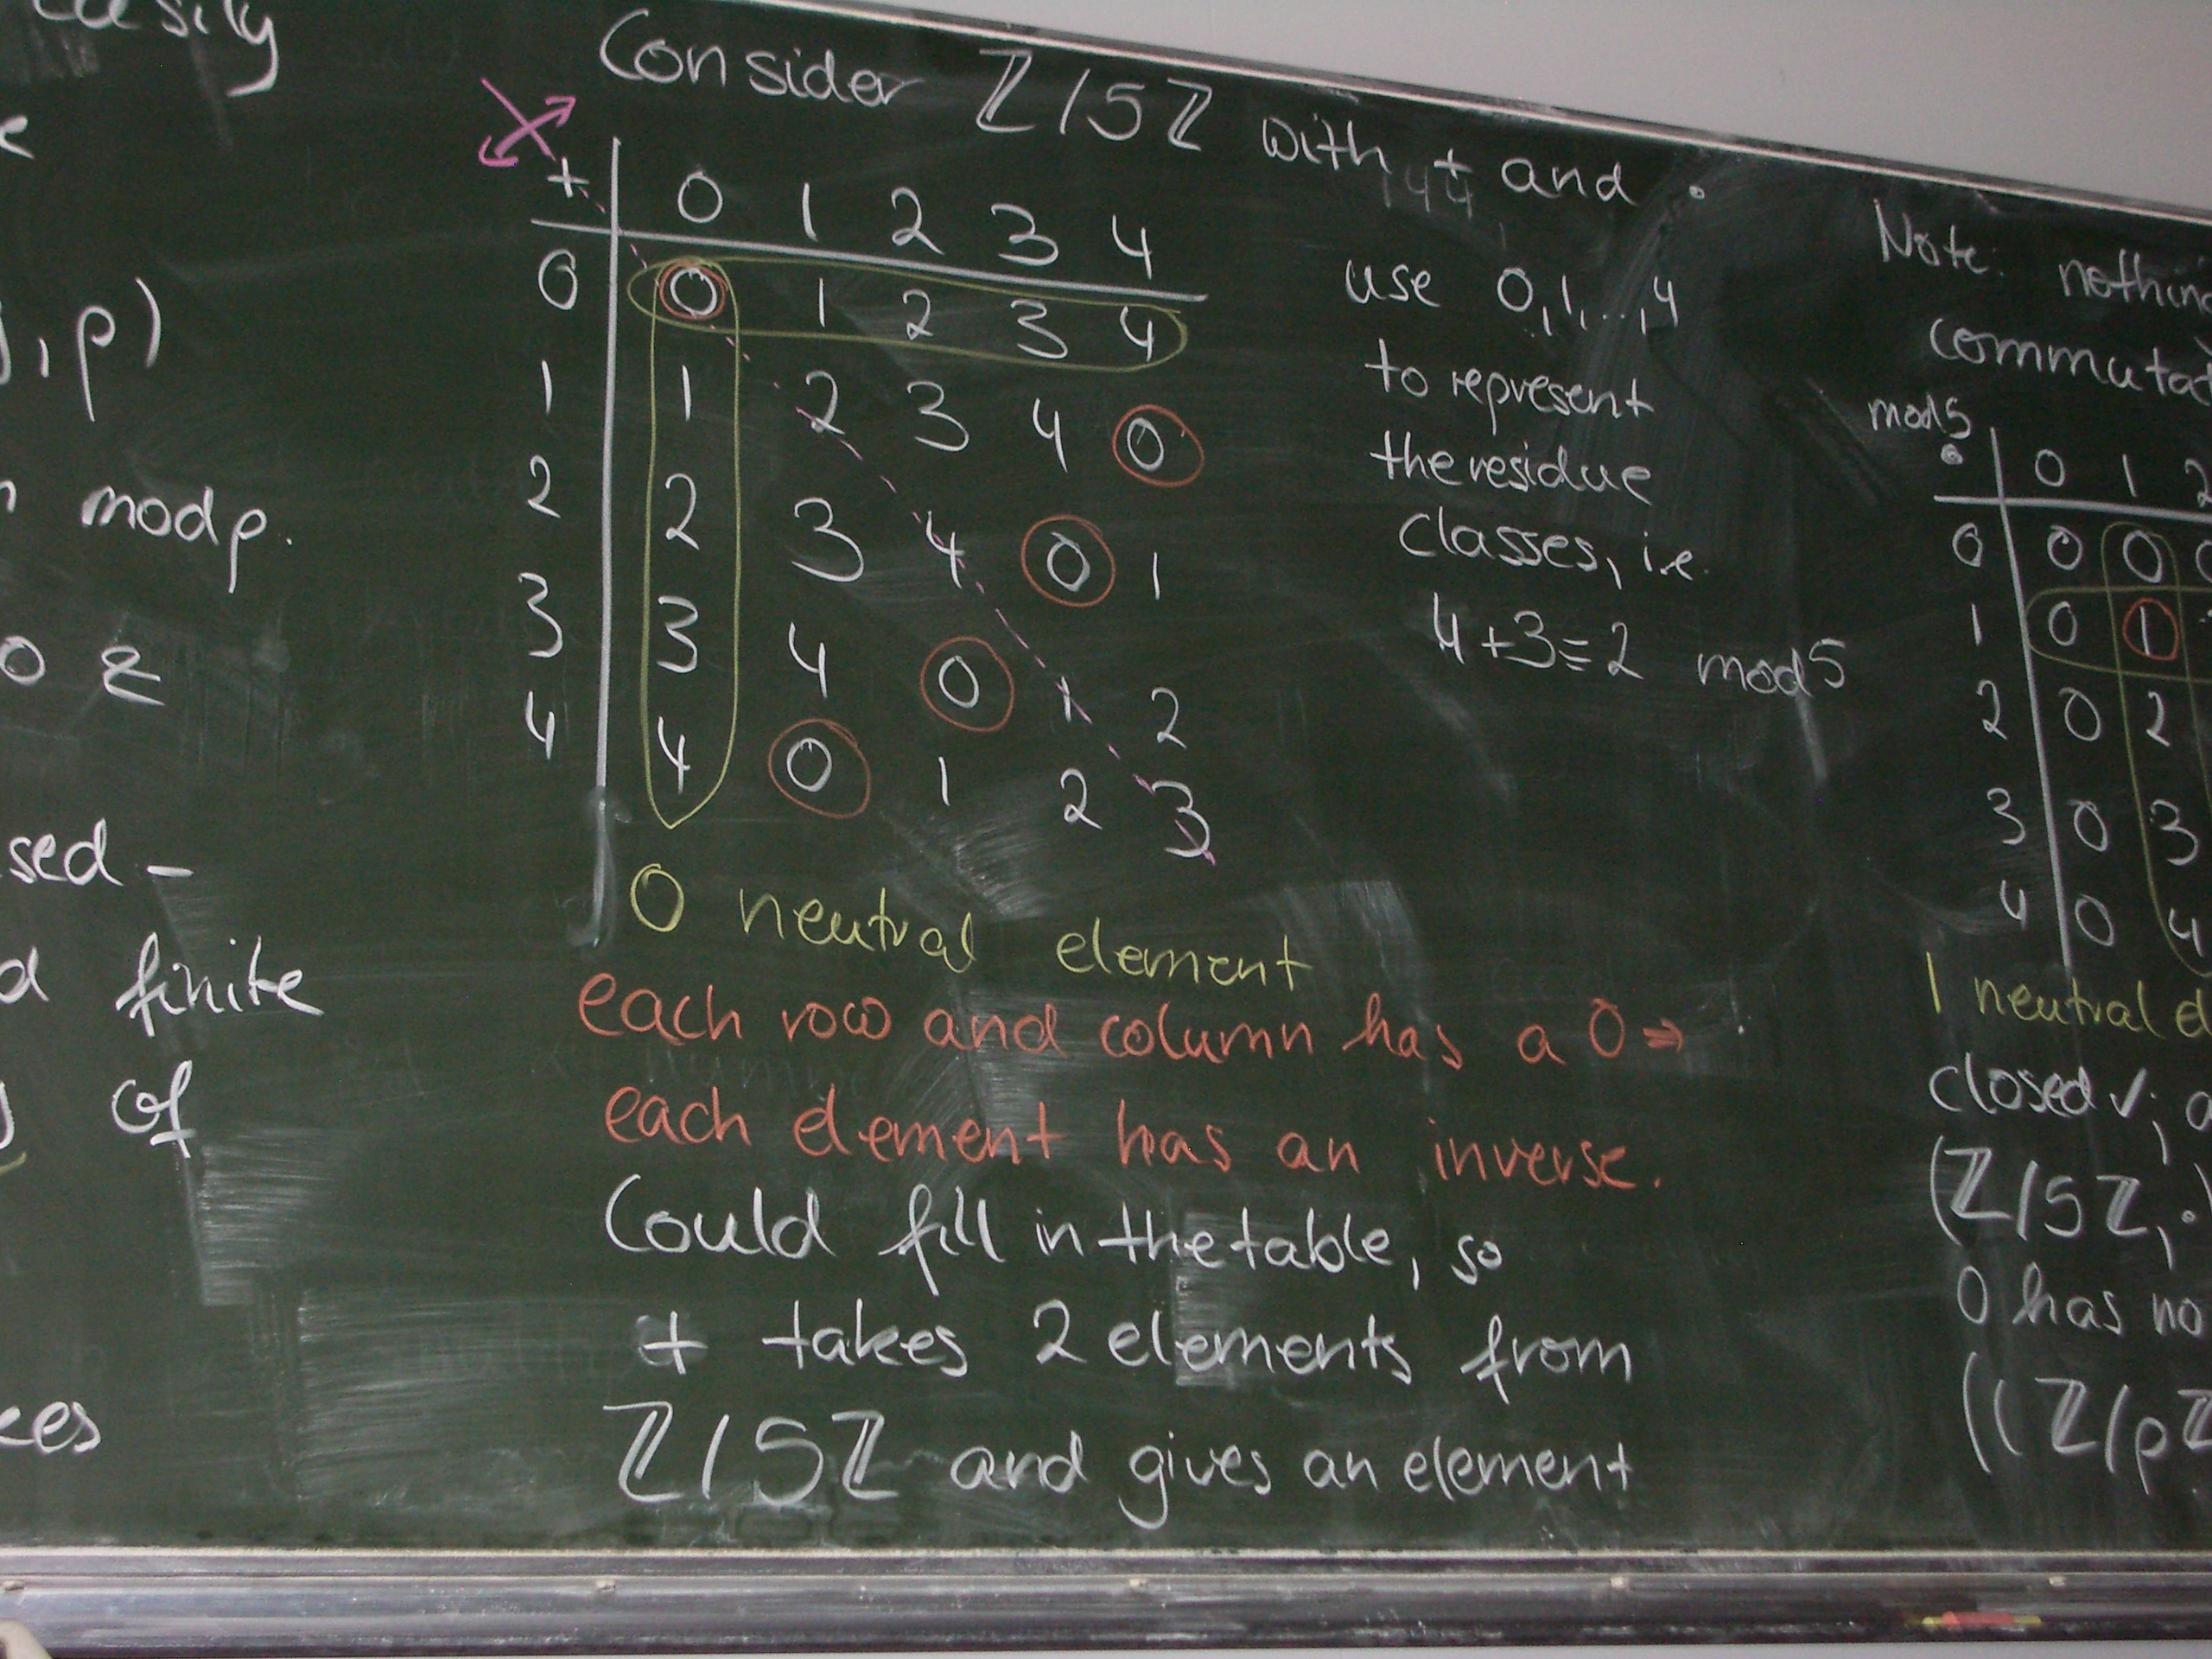 easily
, p)
mod p.
0 &
sed-
finite
of
Consider ℤ/5ℤ with + and ·
+ 0 1 2 3 4
0 0 1 2 3 4
1 1 2 3 4 0
2 2 3 4 0 1
3 3 4 0 1 2
4 4 0 1 2 3
use 0,1,..,4
to represent
the residue
classes, i.e.
4+3≡2 mod 5
0 neutral element
each row and column has a 0 ⇒
each element has an inverse.
Could fill in the table, so
+ takes 2 elements from
ℤ/5ℤ and gives an element
Note: nothing
commutat
mod 5
· 0 1 2
0 0 0 0
1 0 1
2 0 2
3 0 3
4 0 4
1 neutral e
closed ✓;
(ℤ/5ℤ, ·
0 has no
((ℤ/pℤ